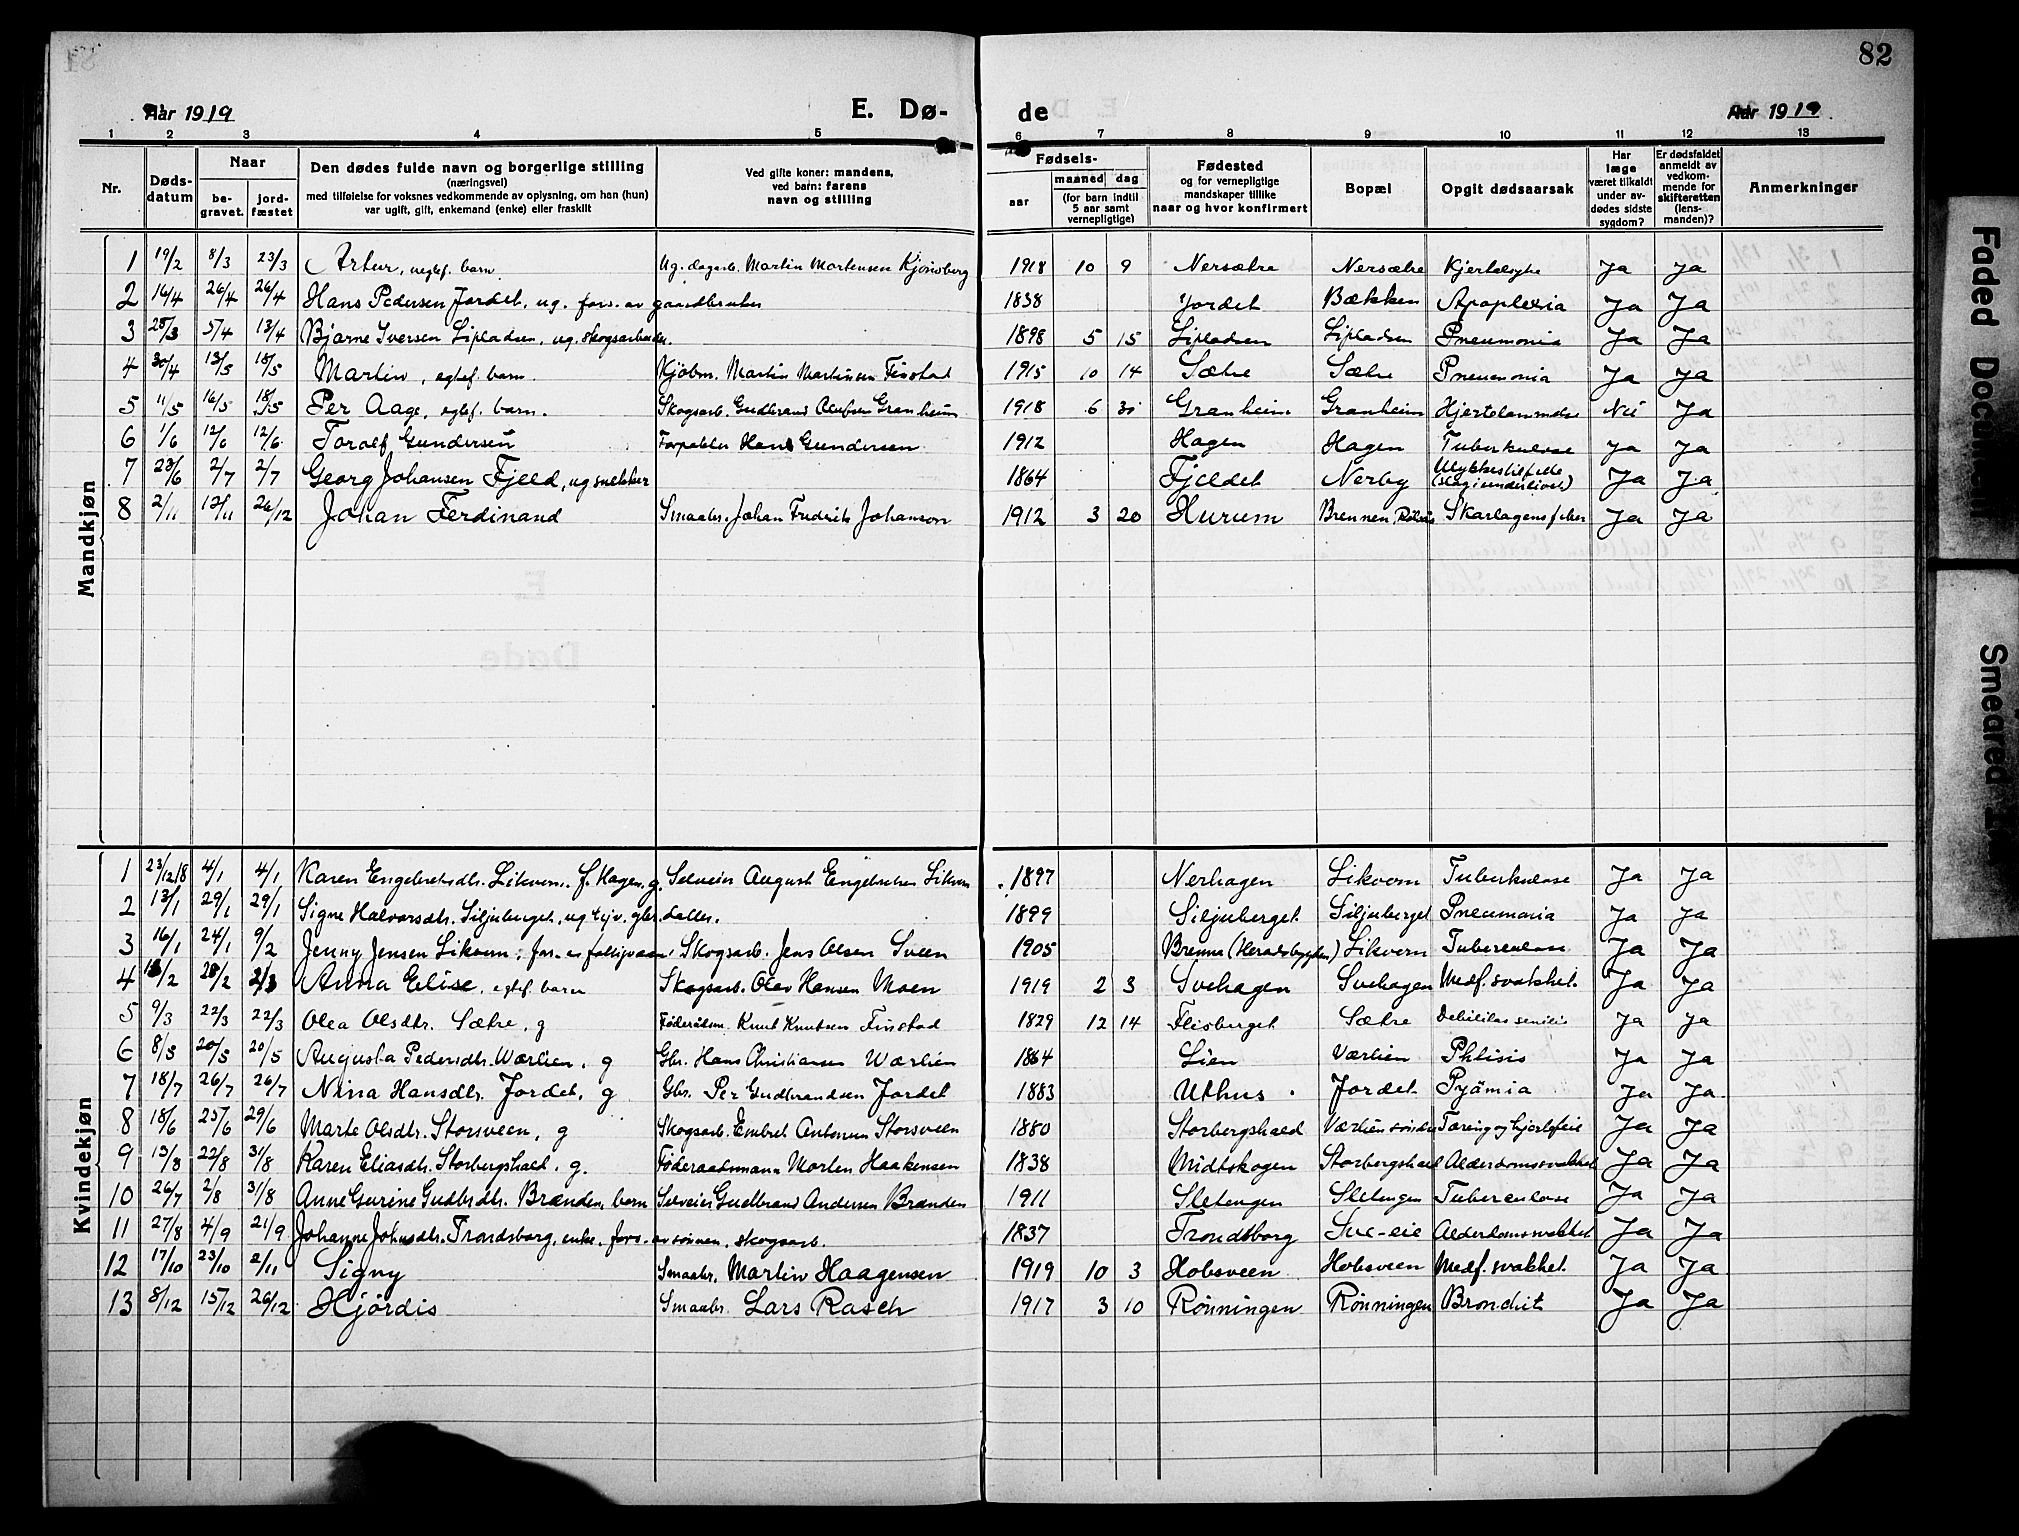 82
Aar 1919
E. Dø-
de
Aar 1919
1 2 3 4 5 6 7 8 9 10 11 12 13
Nr.
Døds-
datum
Naar
be-
gravet.
jord-
fæstet
Den dødes fulde navn og borgerlige stilling
(næringsvei)
med tilføielse for voksnes vedkommende av oplysning, om han (hun)
var ugift, gift, enkemand (enke) eller fraskilt
Ved gifte koner: mandens,
ved barn: farens
navn og stilling
Fødsels-
aar
maaned dag
(for barn indtil
5 aar samt
vernepligtige)
Fødested
og for vernepligtige
mandskaper tillike
naar og hvor konfirmert
Bopæl
Opgit dødsaarsak
Har
læge
været tilkaldt
under av-
dødes sidste
sygdom?
Er dødsfaldet
anmeldt av
vedkom-
mende for
skifteretten
(lens-
manden)?
Anmerkninger
Mandkjøn
1 19/2 8/3 23/3 Artur, uegtef. barn Ug. dagarb. Martin Mortensen Kjønsberg 1918 10 9 Nersætre Nersætre Ja Ja
2 16/4 26/4 26/4 Hans Pedersen Jordet, ug. fors. av gaardbruker 1838 Jordet Bækken Apoplexia Ja Ja
3 28/3 5/4 13/4 Bjarne Iversen Lipladsen, ug. skogsarbeider. 1898 5 15 Lipladsen Lipladsen Pneumonia Ja Ja
4 30/4 13/5 18/5 Martin, egtef. barn. Kjøbm. Martin Martinsen Finstad 1915 10 14 Sætre Sætre Pneumonia Ja Ja
5 11/5 16/5 18/5 Per Aage, egtef. barn. Skogsarb. Gudbrand Olufsen Granheim 1918 6 Granheim Granheim Hjertelammelse Nei Ja
6 1/6 12/6 12/6 Toralf Gundersen Hans Gundersen 1912 Hagen Hagen Tuberkulose Ja Ja
7 23/6 2/7 2/7 Georg Johansen Fjeld, ug snekker 1864 Fjeldet Nerby Ulykkestilfelde
(slag i underlivet) Ja Ja
8 2/11 12/11 26/12 Johan Ferdinand Smaabr. Johan Fredrik Johanson 1912 3 20 Hurum Brennen, Skarlagensfeber Ja Ja
Kvindekjøn
1 23/12 18 4/1 4/1 Karen Engebretsdtr. Likvern, f. Hagen, g. Selveier August Engebretsen Likvern 1897 Nerhagen Likvern Tuberkulose Ja Ja
2 13/1 29/1 29/1 Signe Halvorsdtr. Siljuberget, ug. tjv. gbr. datter. 1899 Siljuberget Siljuberget Pneumonia Ja Ja
3 16/1 24/1 9/2 Jenny Jensen Likvern; fors. av fattigvæs. Skogsarb. Jens Olsen Sveen 1905 Brenna (Heradsbygden) Likvern Tuberculose Ja Ja
4 /2 28/2 2/3 Anna Elise, egtef. barn Skogsarb. Olav Hansen Moen 1919 2 3 Svehagen Svehagen Medf. svakhet. Ja Ja
5 9/3 22/3 22/3 Olea Olsdtr. Sætre, g Føderaadsm. Knut Knutsen Finstad 1829 12 14 Flisberget Sætre Debilitas senilis Ja Ja
6 8/5 20/5 20/5 Augusta Pedersdtr. Wærlien, g Gbr. Hans Christiansen Wærlien 1864 Lien Værlien Phtisis Ja Ja
7 18/7 26/7 26/7 Nina Hansdtr. Jordet, g Gbr. Per Gudbrandsen Jordet 1883 Uthus Jordet Pyämia Ja Ja
8 18/6 25/6 29/6 Marte Olsdtr. Storsveen, g Skogsarb. Embret Antonsen Storsveen 1880 Storbergshaed Værlien søndre Tæring og hjertefeil Ja Ja
9 13/8 22/8 31/8 Karen Eliasdtr. Storbergshaed, g. Føderaadsmann Morten Haakensen 1838 Midtskogen Storbergshaed Alderdomssvakhet Ja Ja
10 26/7 2/8 31/8 Anne Gurine Gudbrdtr. Brænden, barn Selveier Gudbrand Andersen Brænden 1911 Sletengen Sletengen Tuberculose Ja Ja
11 27/8 4/9 21/9 Johanne Johnsdtr. Trondsborg, enke, fors. av sønnen, skogsarb. 1837 Trondsborg Alderdomssvakhet Ja Ja
12 17/10 23/10 2/11 Signy Smaabr. Martin Haagensen 1919 10 3 Hobsveen Hobsveen Medf. svakhet. Ja Ja
13 8/12 15/12 26/12 Hjørdis Smaabr. Lars Rasch 1917 3 10 Rønningen Rønningen Bronchit Ja Ja
Faded Document
Smeared